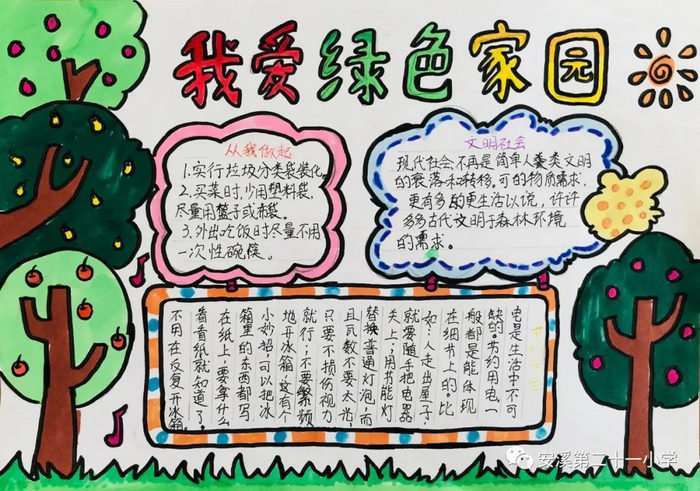 我爱绿色家园
从我做起
1.实行垃圾分类袋装化。
2.买菜时,少用塑料袋,
尽量用篮子或布袋。
3.外出吃饭时尽量不用
一次性碗筷。
文明社会
现代社会,不再是简单人类文明
的衰落和转移,可的物质需求.
更有多的更生活以说,许许
多多古代文明于森林环境
的需求。
电是生活中不可
缺的。节约用电一
般都是能体现
在细节上的。比
如:人走出屋子,
就要随手把电器
关上;用节能灯
替换普通灯泡,而
且瓦数不要太光,
只要不损伤视力
就行;不要繁频
地开冰箱,这有个
小妙招,可以把冰
箱里的东西都写
在纸上,要拿什么
看看纸就知道了。
不用在反复开冰箱。
安溪第二十一小学